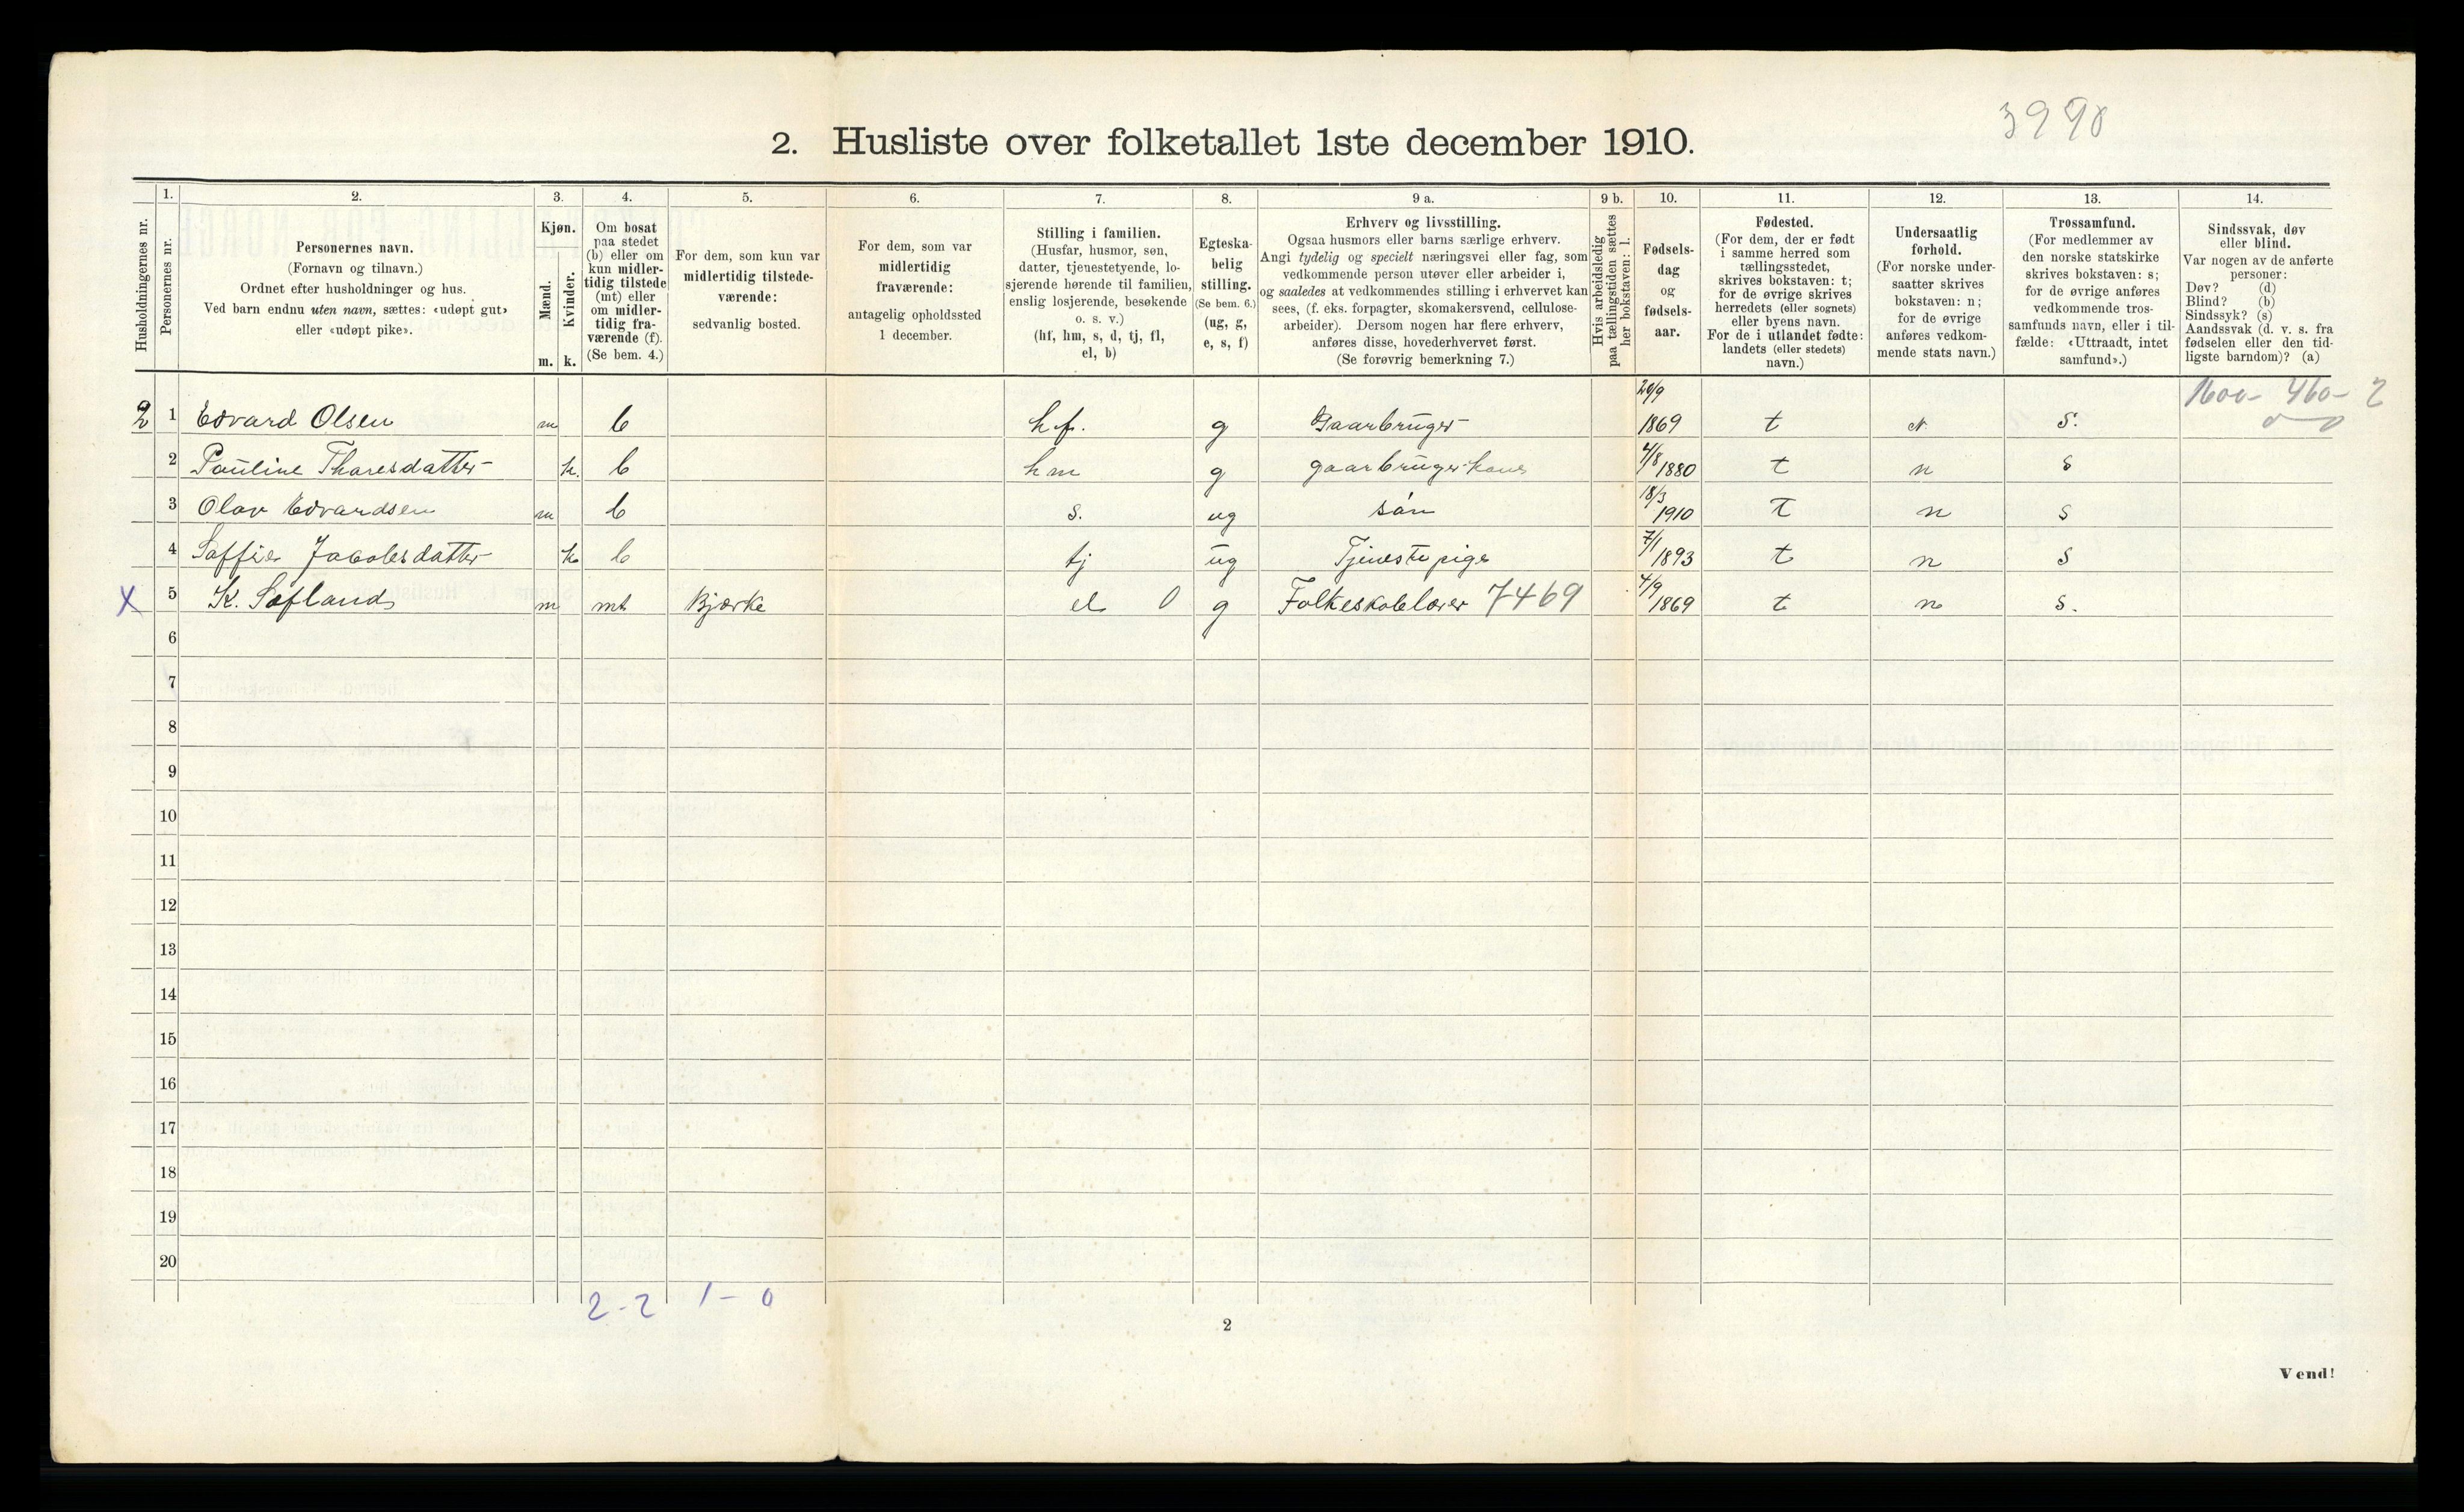 3990
2. Husliste over folketallet 1ste december 1910.
Husholdningernes nr.
1. Personernes nr.
2. Personernes navn. (Fornavn og tilnavn.) Ordnet efter husholdninger og hus. Ved barn endnu uten navn, sættes: «udøpt gut» eller «udøpt pike».
3. Kjøn. Mænd. m. Kvinder. k.
4. Om bosat paa stedet (b) eller om kun midlertidig tilstede (mt) eller om midlertidig fraværende (f). (Se bem. 4.)
5. For dem, som kun var midlertidig tilstedeværende: sedvanlig bosted.
6. For dem, som var midlertidig fraværende: antagelig opholdssted 1 december.
7. Stilling i familien. (Husfar, husmor, søn, datter, tjenestetyende, losjerende hørende til familien, enslig losjerende, besøkende o. s. v.) (hf, hm, s, d, tj, fl, el, b)
8. Egteskabelig stilling. (Se bem. 6.) (ug, g, e, s, f)
9 a. Erhverv og livsstilling. Ogsaa husmors eller barns særlige erhverv. Angi tydelig og specielt næringsvei eller fag, som vedkommende person utøver eller arbeider i, og saaledes at vedkommendes stilling i erhvervet kan sees, (f. eks. forpagter, skomakersvend, cellulosearbeider). Dersom nogen har flere erhverv, anføres disse, hovederhvervet først. (Se forøvrig bemerkning 7.)
9 b. Hvis arbeidsledig paa tællingstiden sættes her bokstaven: l.
10. Fødselsdag og fødselsaar.
11. Fødested. (For dem, der er født i samme herred som tællingsstedet, skrives bokstaven: t; for de øvrige skrives herredets (eller sognets) eller byens navn. For de i utlandet fødte: landets (eller stedets) navn.)
12. Undersaatlig forhold. (For norske undersaatter skrives bokstaven: n; for de øvrige anføres vedkommende stats navn.)
13. Trossamfund. (For medlemmer av den norske statskirke skrives bokstaven: s; for de øvrige anføres vedkommende trossamfunds navn, eller i tilfælde: «Uttraadt, intet samfund».)
14. Sindssvak, døv eller blind. Var nogen av de anførte personer: Døv? (d) Blind? (b) Sindssyk? (s) Aandssvak (d. v. s. fra fødselen eller den tidligste barndom)? (a)
1600- 460- 2
2 1 Edvard Olsen m b hf. g Gaarbruger 20/9 1869 t N. S.
2 Pauline Tharesdatter k. b hm g gaarbruger kone 4/8 1880 t n s
3 Olav Edvardsen m b s. ug søn 18/3 1910 T n s
4 Saffie Jacobsdatter k b tj ug Tjenestepige 7/1 1893 t n s
X 5 K. Søfland m mt Bjørke el 0 g Folkeskolelærer 7469 4/9 1869 t n s.
6
7
8
9
10
11
12
13
14
15
16
17
18
19
20
2-2 1-0
2
Vend!